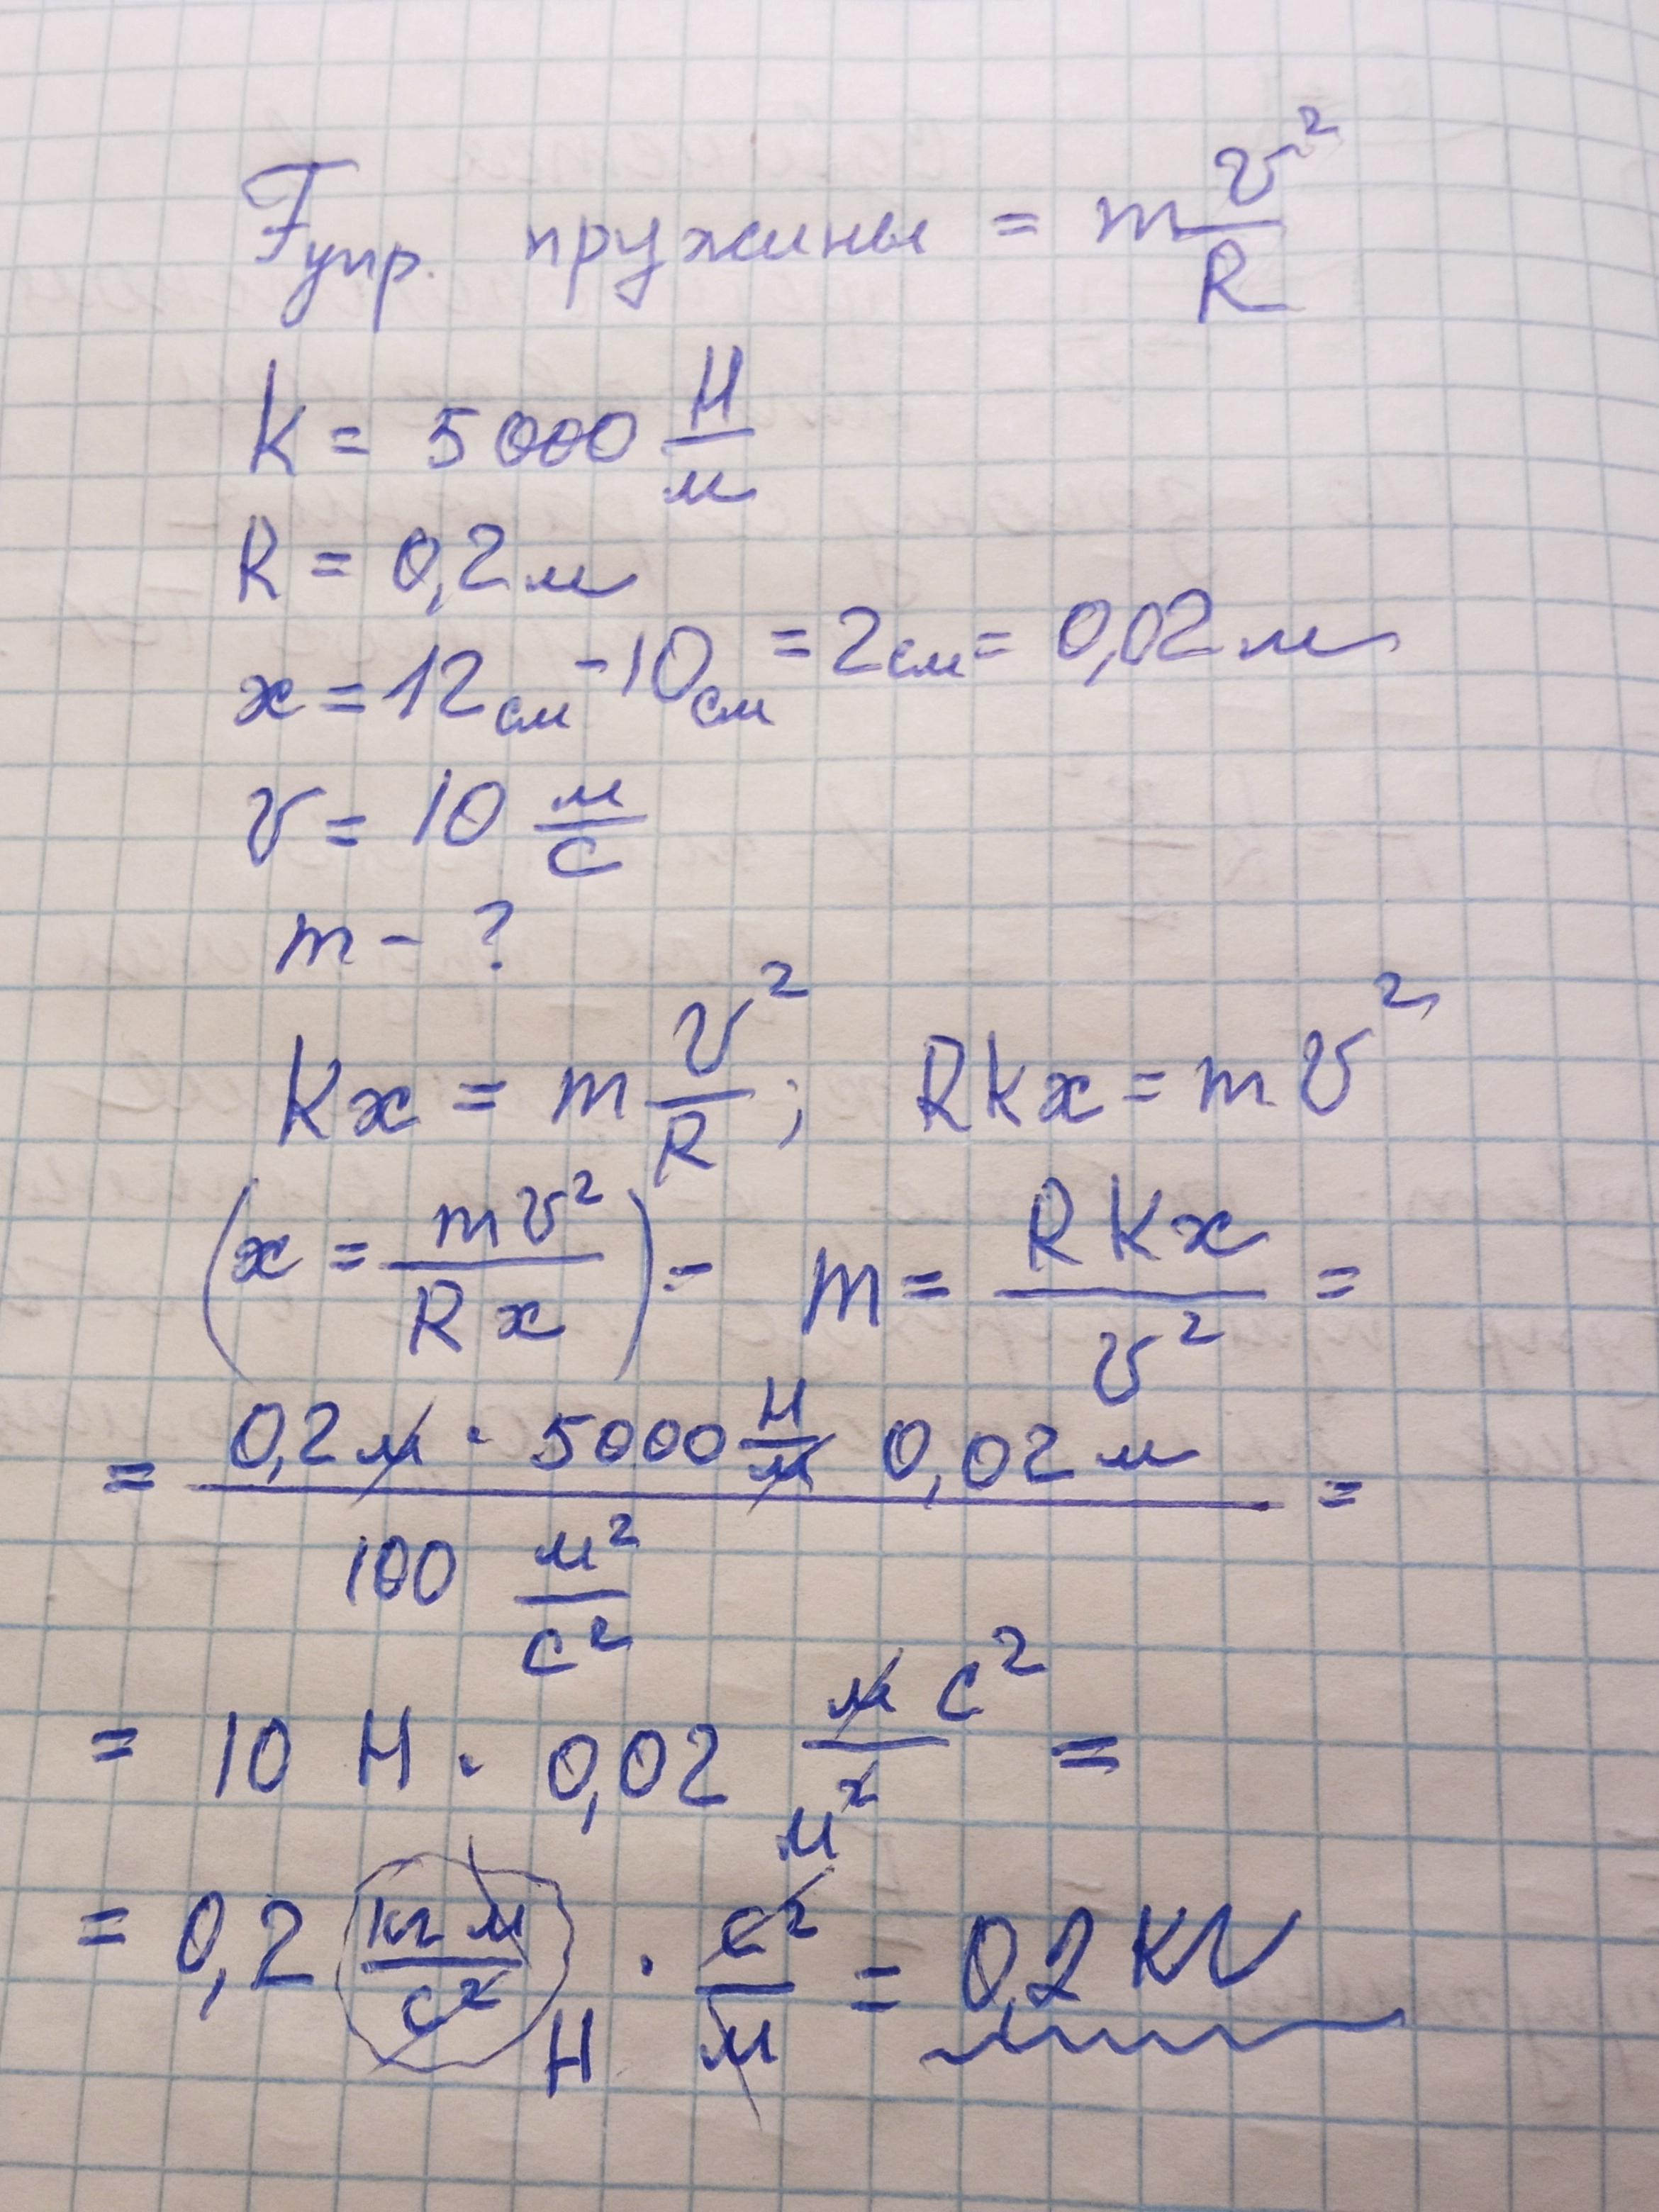 Fупр. пружины = m v²/R
k = 5000 Н/м
R = 0,2 м
x = 12 см - 10 см = 2 см = 0,02 м
v = 10 м/с
m - ?
kx = m v²/R ; Rkx = m v²
(x = mv²/Rx) - m = Rkx/v² =
= 0,2 м · 5000 Н/м 0,02 м / 100 м²/с² =
= 10 Н · 0,02 м с²/м² =
= 0,2 кг м/с² Н · с²/м = 0,2 кг